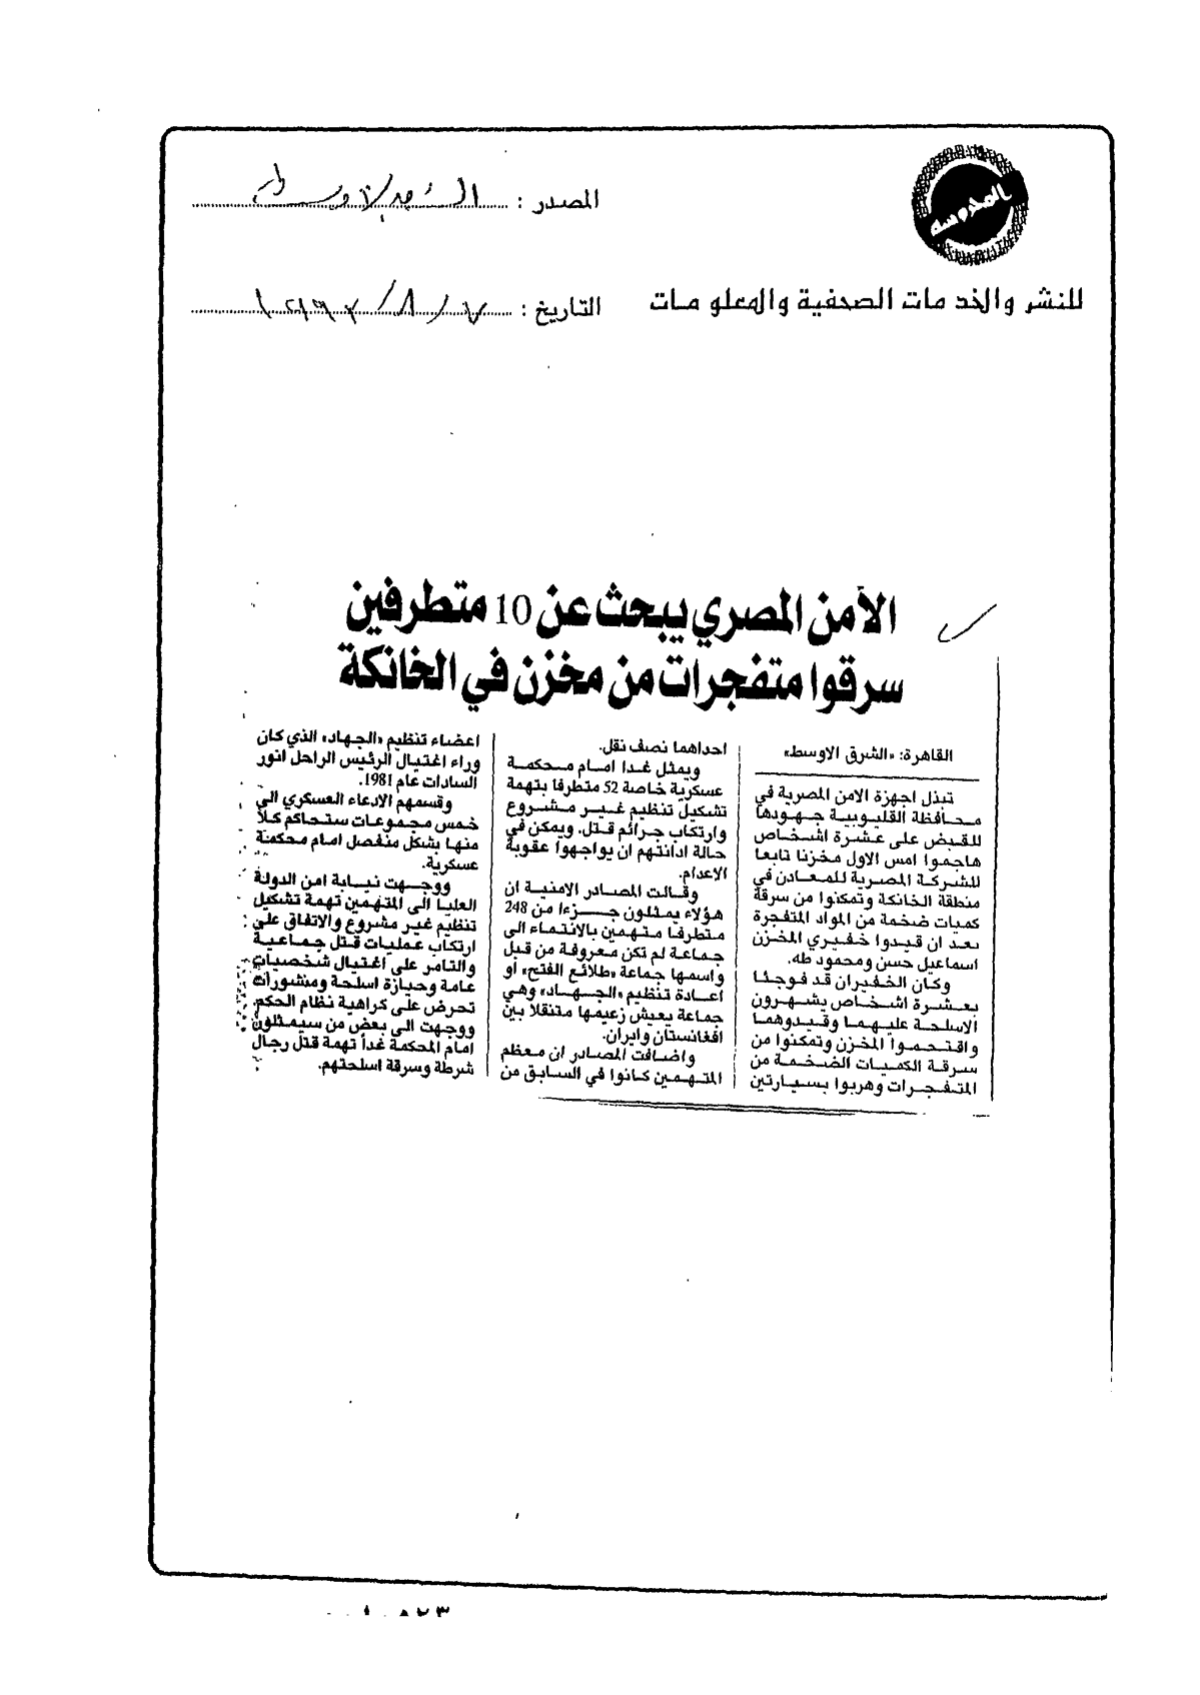 المصدر : الشرق الاوسط
للنشر والخدمات الصحفية والمعلومات
التاريخ : ٧ / ٨ / ١٩٩٣
الأمن المصري يبحث عن 10 متطرفين
سرقوا متفجرات من مخزن في الخانكة
القاهرة: «الشرق الاوسط»
تبذل اجهزة الامن المصرية في
محافظة القليوبية جهودها
للقبض على عشرة اشخاص
هاجموا امس الاول مخزنا تابعا
للشركة المصرية للمعادن في
منطقة الخانكة وتمكنوا من سرقة
كميات ضخمة من المواد المتفجرة
بعد ان قيدوا خفيري المخزن
اسماعيل حسن ومحمود طه.
وكان الخفيران قد فوجئا
بعشرة اشخاص يشهرون
الاسلحة عليهما وقيدوهما
واقتحموا المخزن وتمكنوا من
سرقة الكميات الضخمة من
المتفجرات وهربوا بسيارتين
احداهما نصف نقل.
ويمثل غدا امام محكمة
عسكرية خاصة 52 متطرفا بتهمة
تشكيل تنظيم غير مشروع
وارتكاب جرائم قتل. ويمكن في
حالة ادانتهم ان يواجهوا عقوبة
الاعدام.
وقالت المصادر الامنية ان
هؤلاء يمثلون جزءا من 248
متطرفا متهمين بالانتماء الى
جماعة لم تكن معروفة من قبل
واسمها جماعة «طلائع الفتح» أو
اعادة تنظيم «الجهاد» وهي
جماعة يعيش زعيمها متنقلا بين
افغانستان وايران.
واضافت المصادر ان معظم
المتهمين كانوا في السابق من
اعضاء تنظيم «الجهاد» الذي كان
وراء اغتيال الرئيس الراحل انور
السادات عام 1981.
وقسمهم الادعاء العسكري الى
خمس مجموعات ستحاكم كلا
منها بشكل منفصل امام محكمة
عسكرية.
ووجهت نيابة امن الدولة
العليا الى المتهمين تهمة تشكيل
تنظيم غير مشروع والاتفاق على
ارتكاب عمليات قتل جماعية
والتامر على اغتيال شخصيات
عامة وحيازة اسلحة ومنشورات
تحرض على كراهية نظام الحكم.
ووجهت الى بعض من سيمثلون
امام المحكمة غداً تهمة قتل رجال
شرطة وسرقة اسلحتهم.